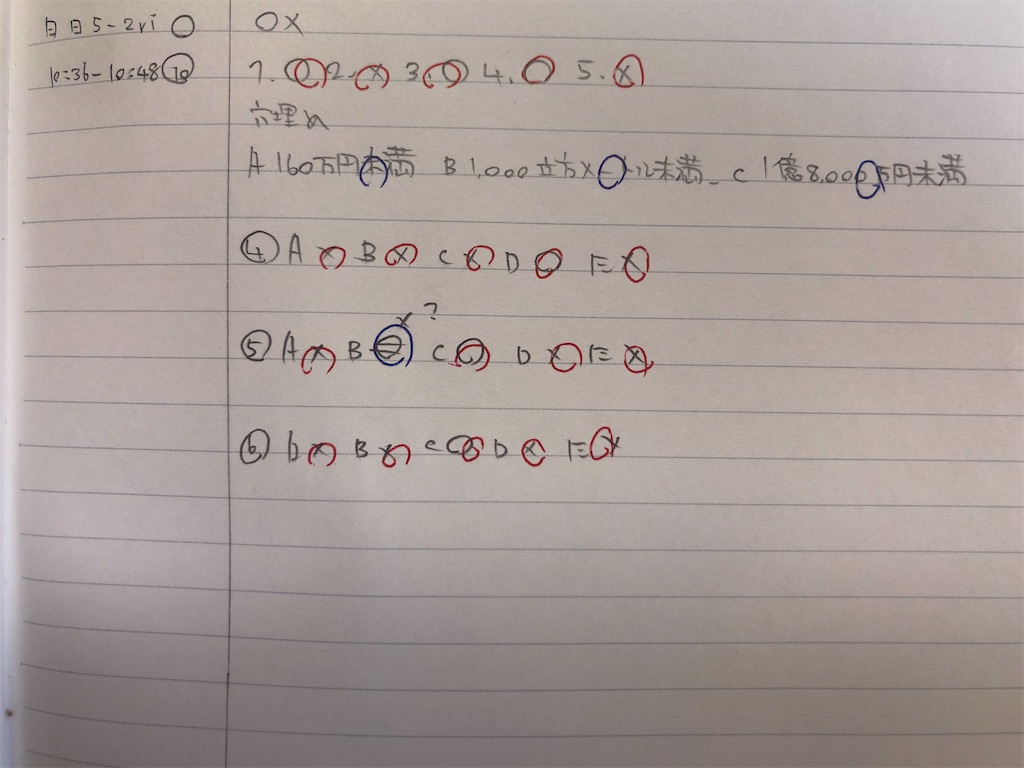 日日5-2ri ○
10:36-10:48 12
○×
1. ○ 2. × 3. ○ 4. ○ 5. ×
穴埋め
A 160万円未満 B 1,000立方メートル未満 C 1億8,000万円未満
④ A ○ B × C ○ D ○ E ×
×?
⑤ A × B ○ C ○ D × E ×
⑥ D × B × C ○ D × E ×